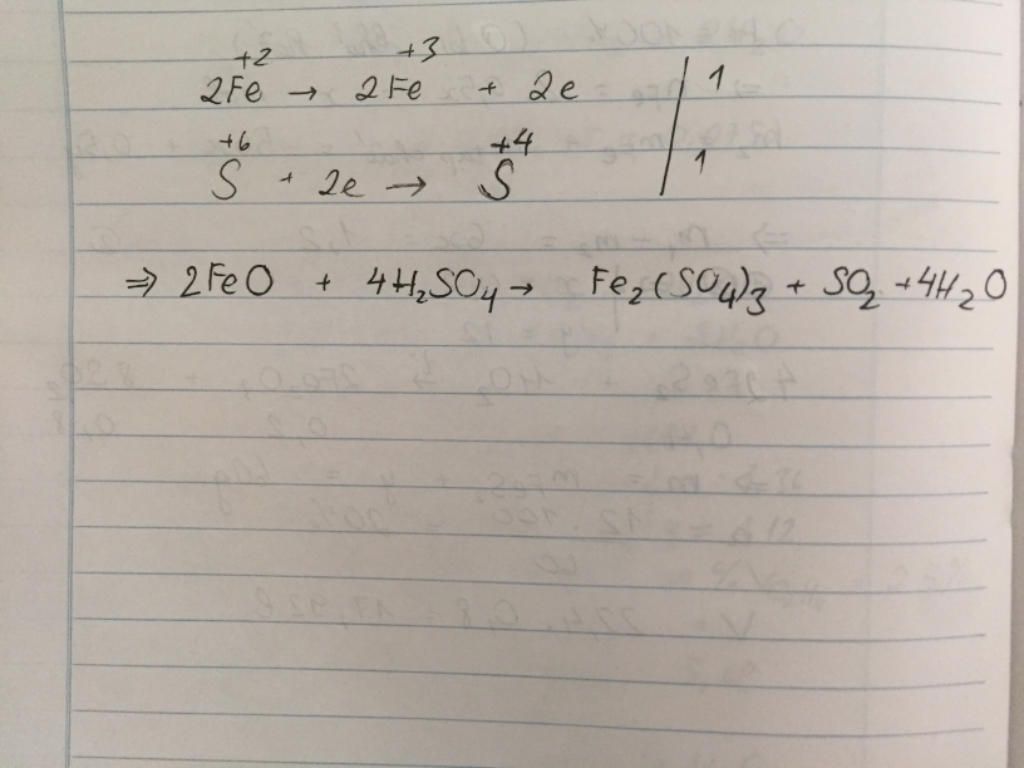 +2 +3
2Fe → 2Fe + 2e | 1
+6 +4
S + 2e → S | 1
⇒ 2FeO + 4H₂SO₄ → Fe₂(SO₄)₃ + SO₂ + 4H₂O